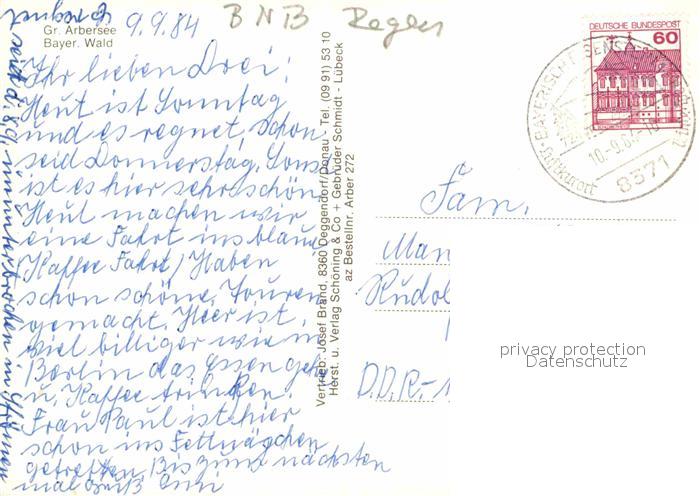 9.9.84
BNB Regen
Gr. Arbersee
Bayer. Wald
Ihr lieben Drei!
Heut ist Sonntag
und es regnet, schon
seid Donnerstag. Sons
ist es hier sehr schön
Heut machen wir
eine Fahrt ins blaue
(Kaffee Fahrt) Haben
schon schöne Touren
gemacht. Hier ist,
viel billiger wie in
Berlin das Essen geh
u. Kaffee trinken.
Frau Paul ist hier
schon ins Fettnäpchen
getretten. Bis zum nächsten
mal Gruß
regnet
seid d. 8.9. ununterbrochen in Strömen
Vertrieb: Josef Brand, 8360 Deggendorf/Donau - Tel. (09 91) 53 10
Herst. u. Verlag Schöning & Co + Gebrüder Schmidt - Lübeck
az Bestellnr. Arber 272
DEUTSCHE BUNDESPOST
60
BAYERISCH
10.-9.8
Luftkurort
8371
Fam.
Man
Rudol
D.D.R.-1
privacy protection
Datenschutz